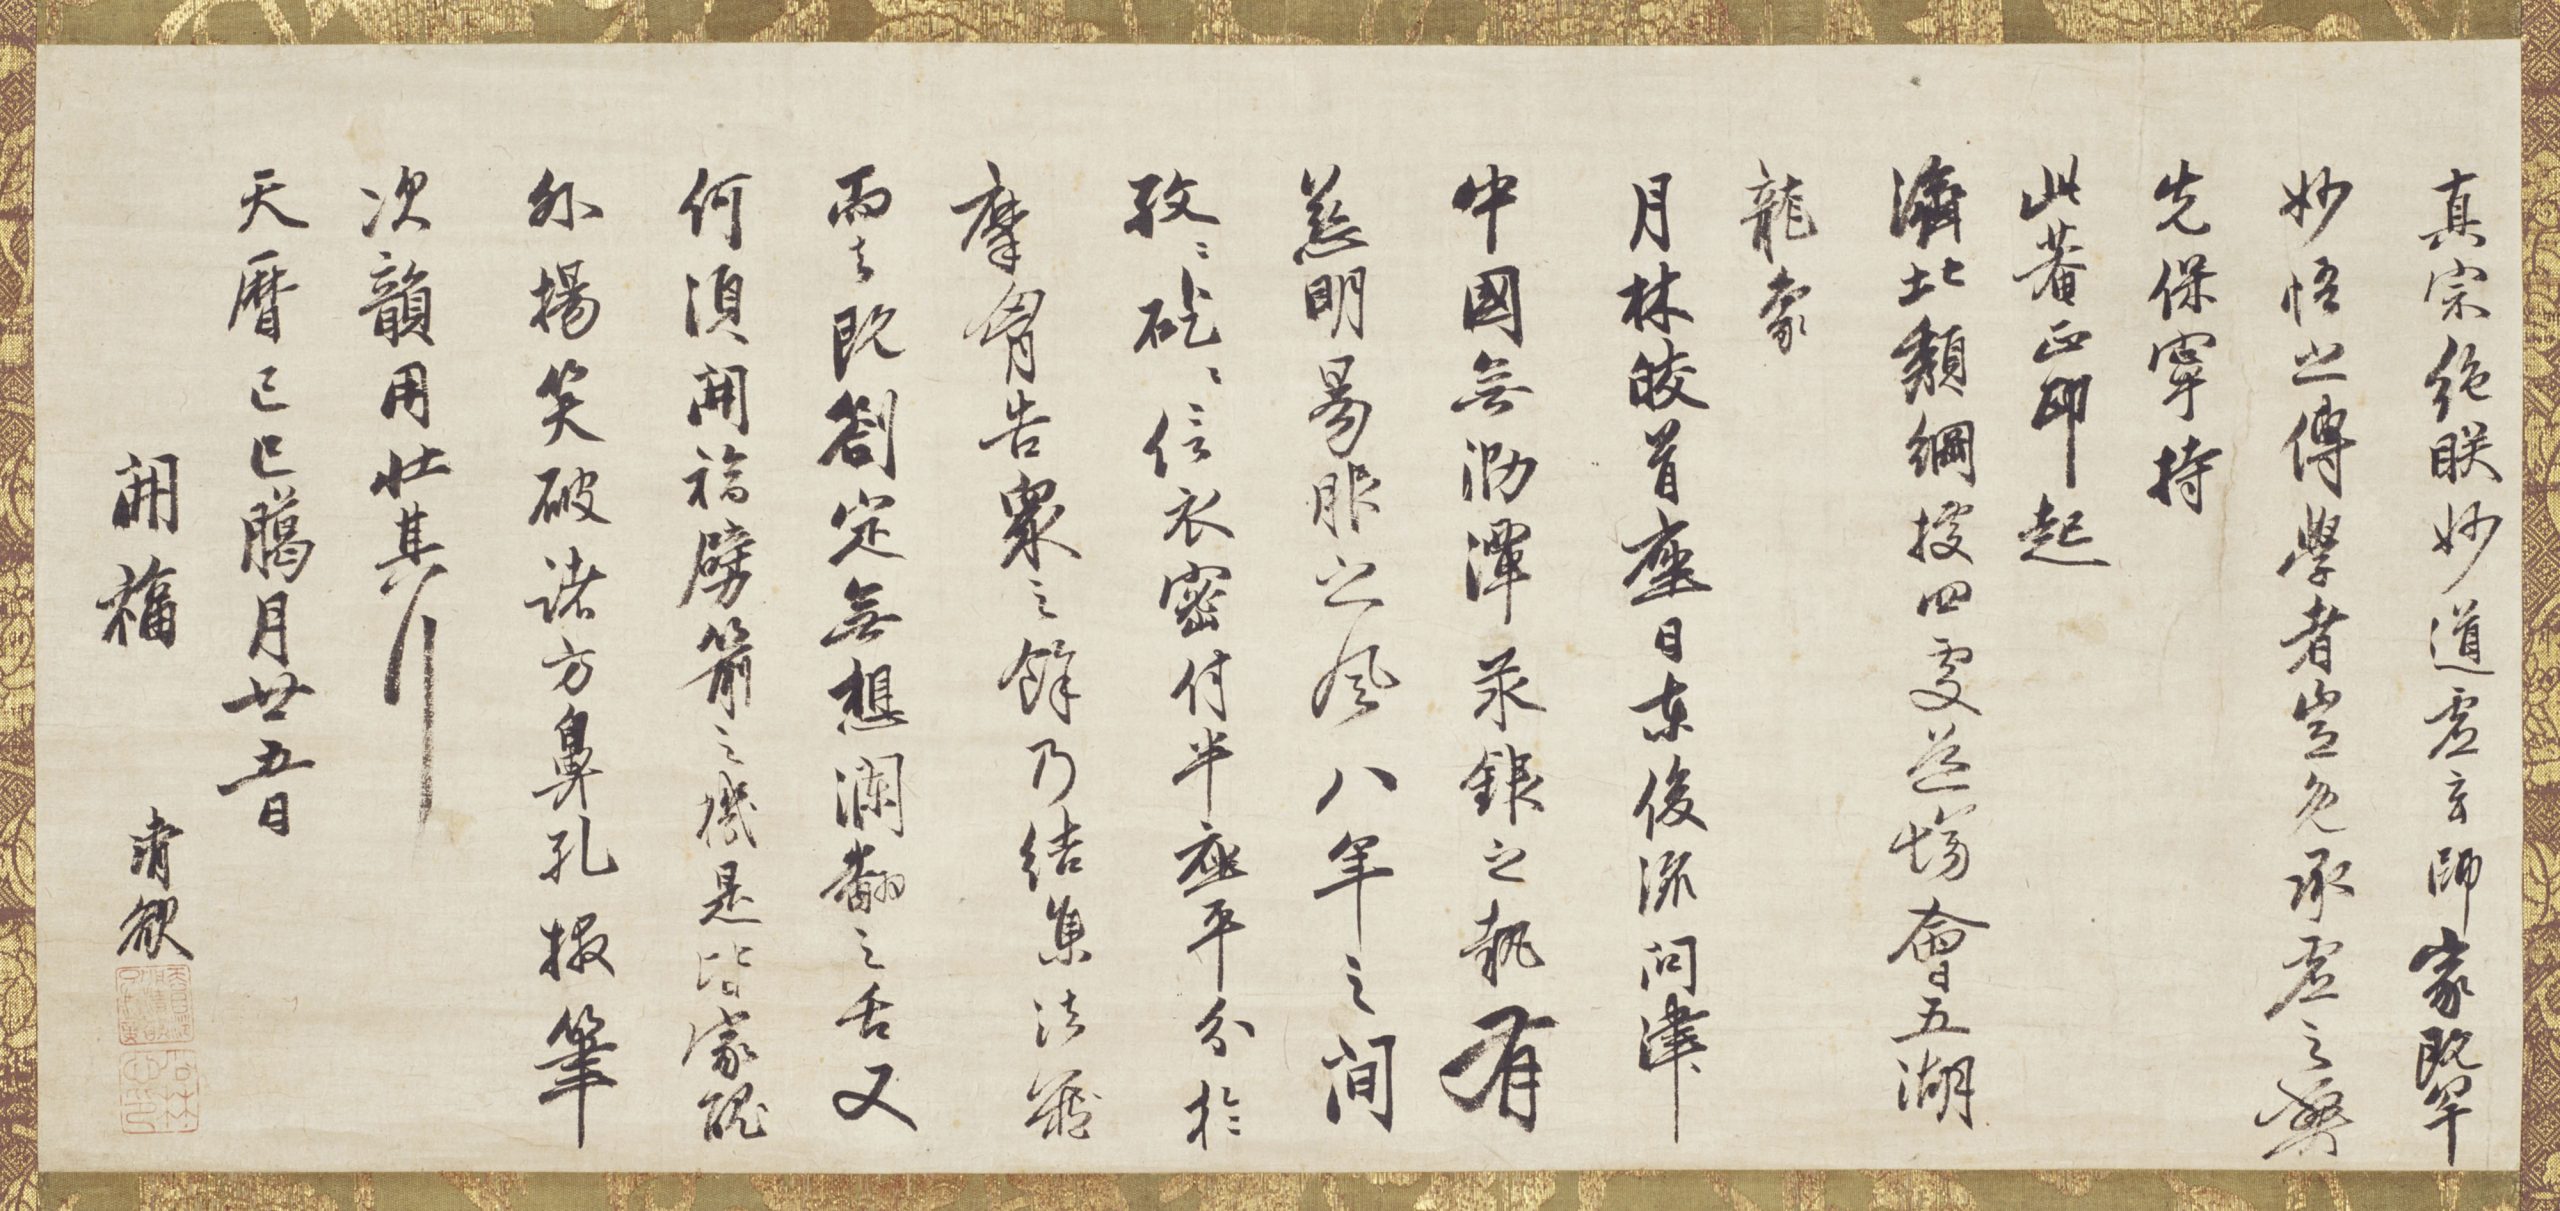 真宗絶朕妙道虛玄師家既罕
妙悟之傳學者豈免承虛之弊
先保寧持
此菴正印起
濟北頽綱授四處道場會五湖
龍象
月林皎首座日東俊流問津
中國無泐潭汞銀之執有
慈明昜脽之風八年之間
孜〻矻〻信衣密付半座平分於
摩胷告衆之餘乃結集法義
而去既劄定無想瀾翻之舌又
何須開福劈箭之機是皆家醜
外揚笑破諸方鼻孔援筆
次韻用壯其行
天曆己巳臈月廿五日
開福 清欲